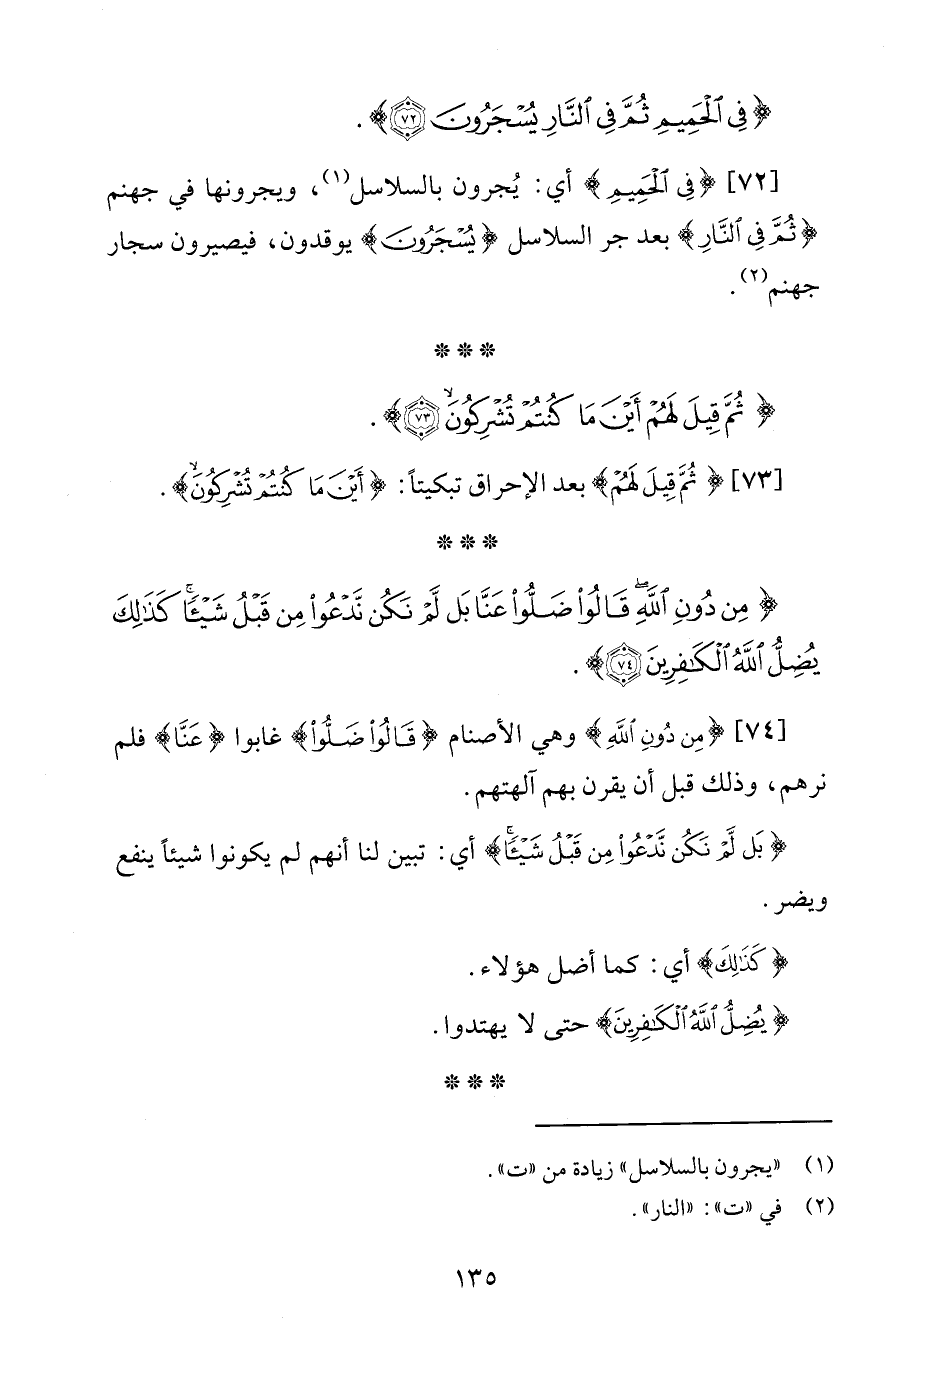 ﴿ فِي ٱلْحَمِيمِ ثُمَّ فِي ٱلنَّارِ يُسْجَرُونَ ٧٢﴾.
[٧٢] ﴿فِي ٱلْحَمِيمِ﴾ أي: يُجرون بالسلاسل(١)، ويجرونها في جهنم
﴿ثُمَّ فِي ٱلنَّارِ﴾ بعد جر السلاسل ﴿يُسْجَرُونَ﴾ يوقدون، فيصيرون سجار
جهنم(٢).
* * *
﴿ ثُمَّ قِيلَ لَهُمْ أَيْنَ مَا كُنتُمْ تُشْرِكُونَۙ ٧٣﴾.
[٧٣] ﴿ ثُمَّ قِيلَ لَهُمْ﴾ بعد الإحراق تبكيتاً: ﴿أَيْنَ مَا كُنتُمْ تُشْرِكُونَۙ﴾.
* * *
﴿ مِن دُونِ ٱللَّهِۖ قَالُوا۟ ضَلُّوا۟ عَنَّا بَل لَّمْ نَكُن نَّدْعُوا۟ مِن قَبْلُ شَيْـًٔاۚ كَذَٰلِكَ
يُضِلُّ ٱللَّهُ ٱلْكَـٰفِرِينَ ٧٤﴾.
[٧٤] ﴿مِن دُونِ ٱللَّهِ﴾ وهي الأصنام ﴿قَالُوا۟ ضَلُّوا۟﴾ غابوا ﴿عَنَّا﴾ فلم
نرهم، وذلك قبل أن يقرن بهم آلهتهم.
﴿بَل لَّمْ نَكُن نَّدْعُوا۟ مِن قَبْلُ شَيْـًٔاۚ﴾ أي: تبين لنا أنهم لم يكونوا شيئاً ينفع
ويضر.
﴿ كَذَٰلِكَ﴾ أي: كما أضل هؤلاء.
﴿ يُضِلُّ ٱللَّهُ ٱلْكَـٰفِرِينَ﴾ حتى لا يهتدوا.
* * *
(١) «يجرون بالسلاسل» زيادة من «ت».
(٢) في «ت»: «النار».
١٣٥